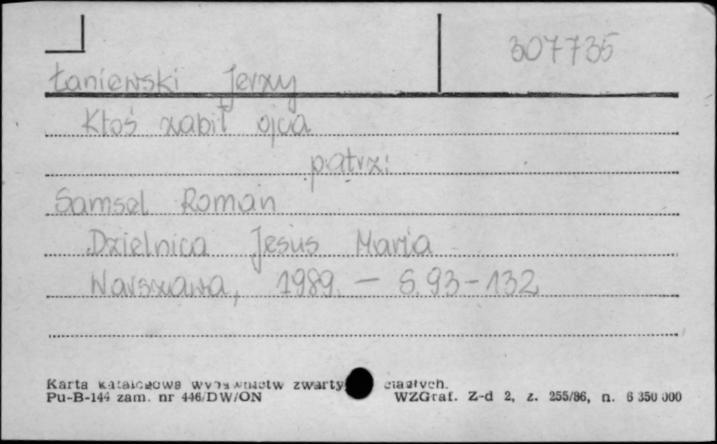 307735
Łaniewski Jerzy
Ktoś zabił ojca
patrz:
Samsel Roman
Dzielnica Jesus Maria
Warszawa, 1989. – S. 93-132
Karta katalogowa wydawnictw zwarty ciągłych.
Pu-B-144 zam. nr 446/DW/ON WZGraf. Z-d 2, z. 255/86, n. 6 350 000